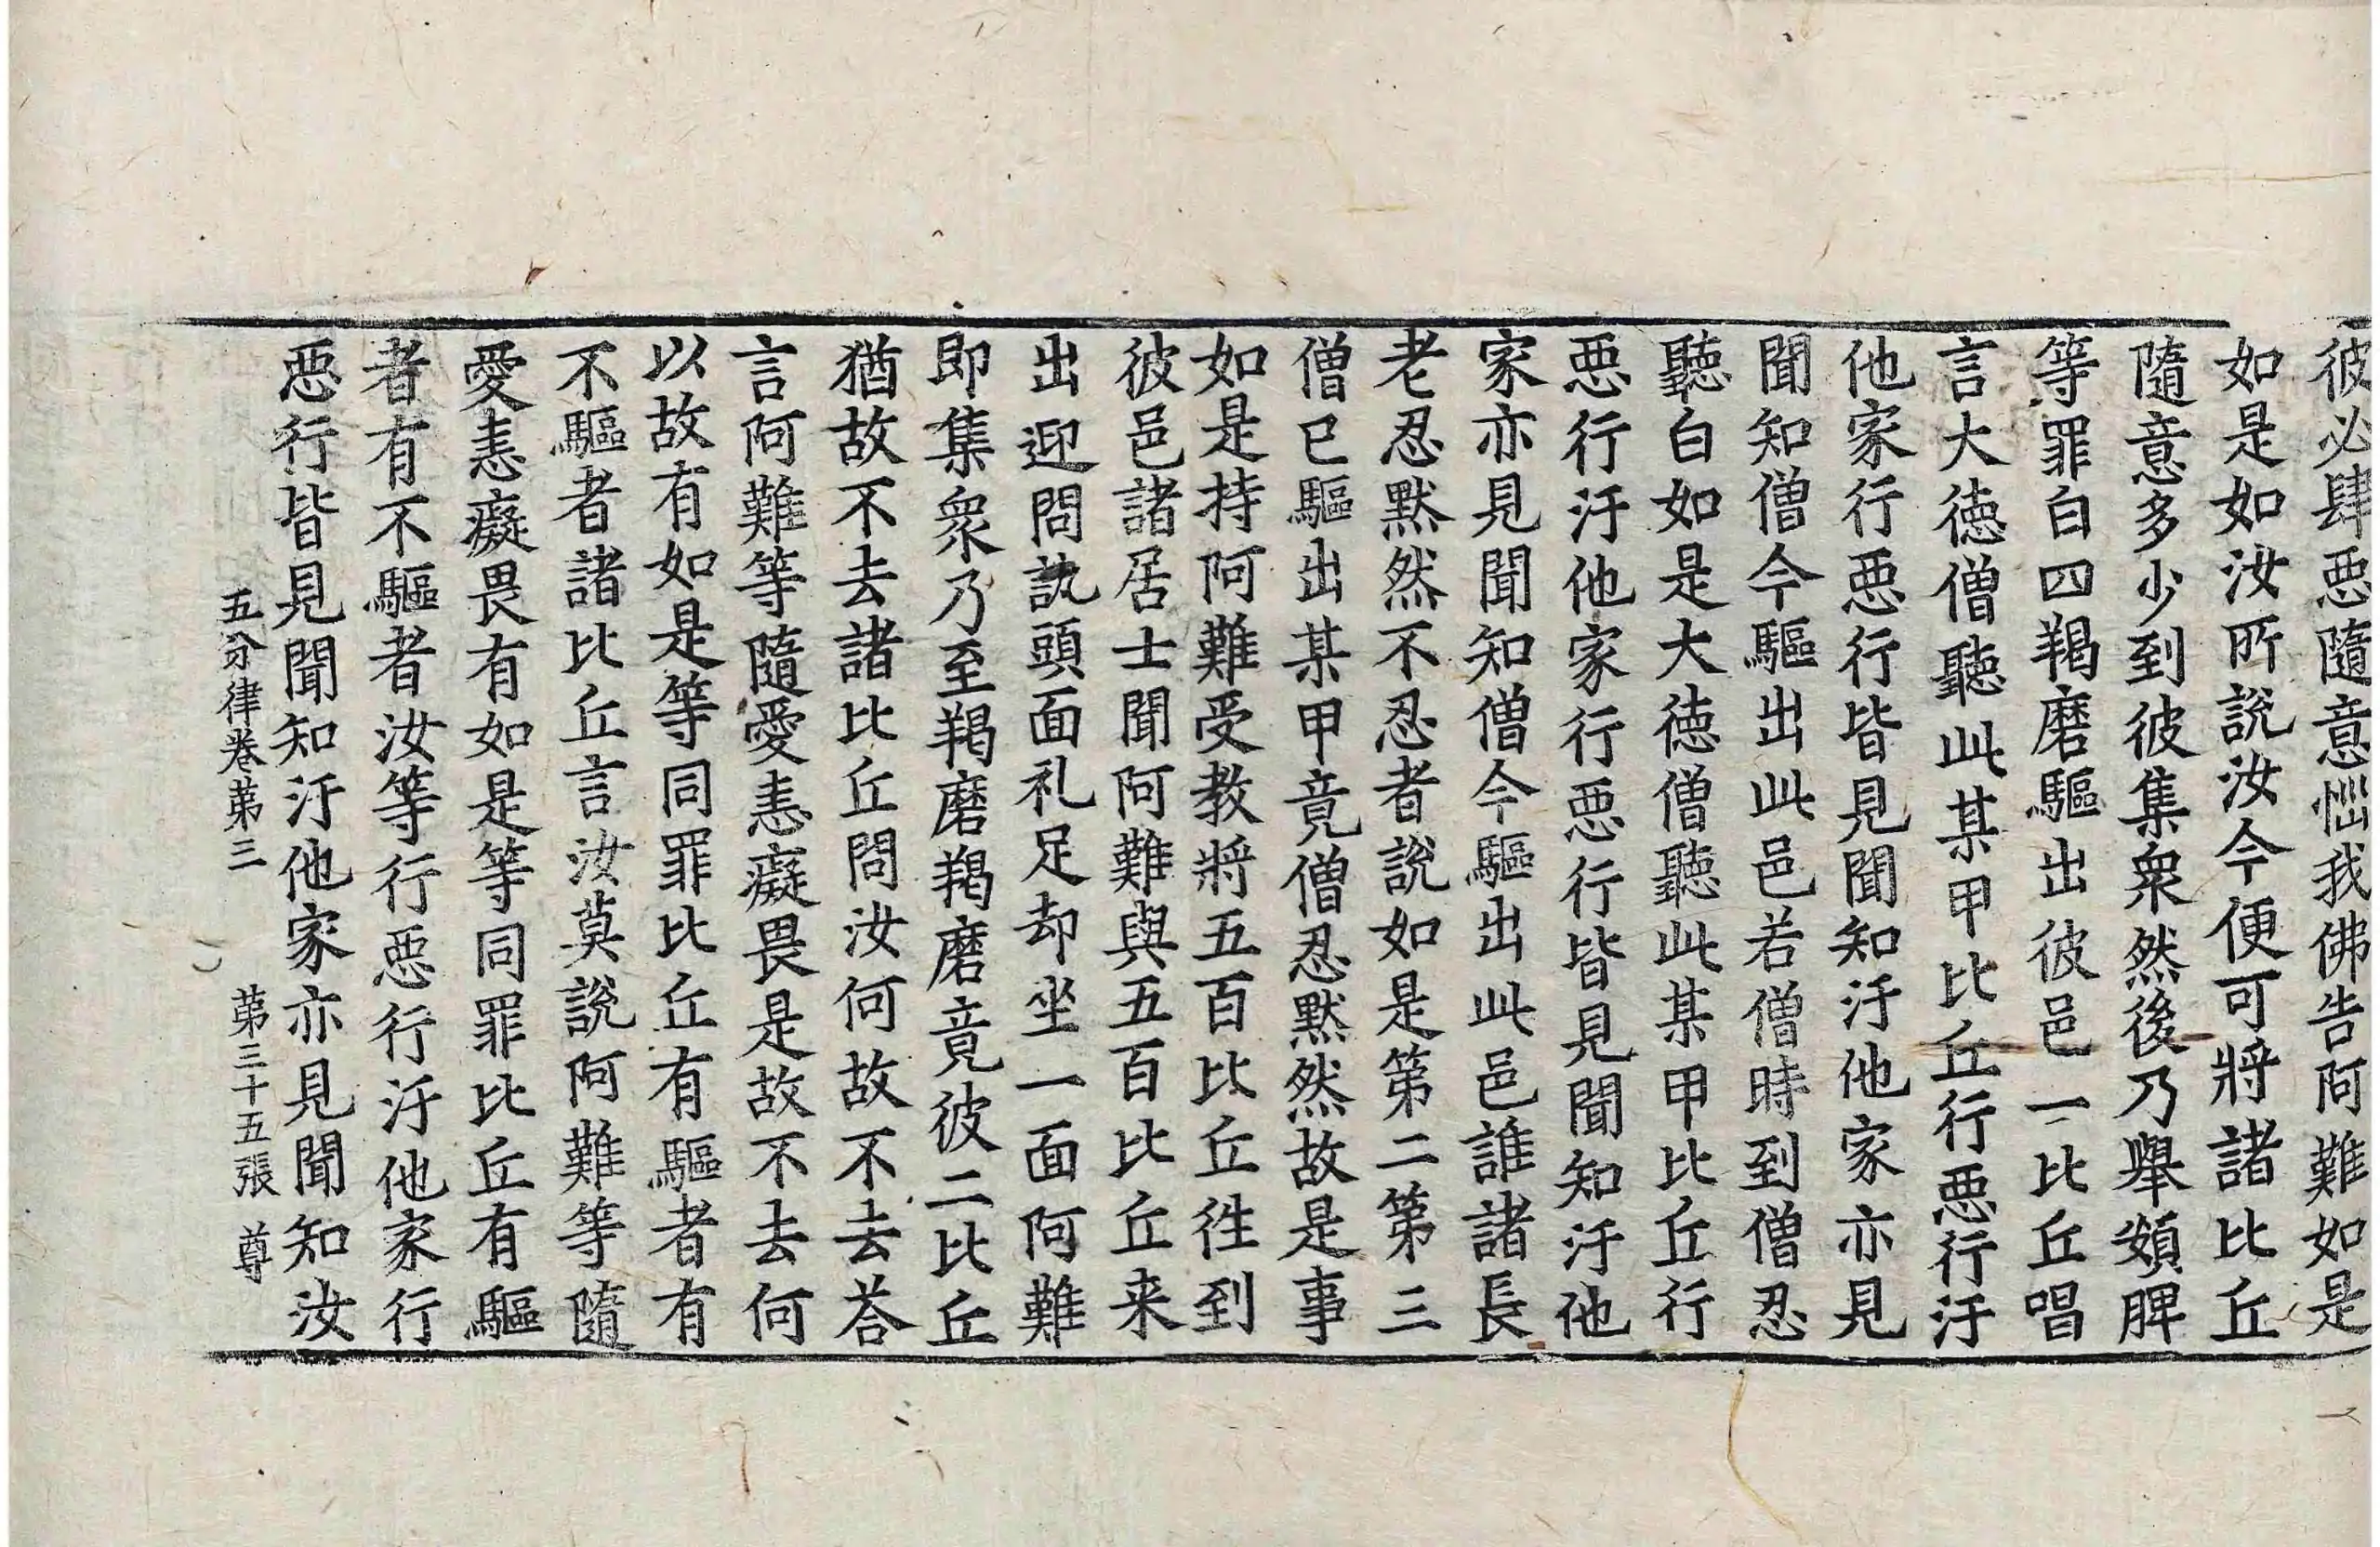 彼必肆惡隨意惱我佛告阿難如是
如是如汝所說汝今便可將諸比丘
隨意多少到彼集衆然後乃舉頞脾
等罪白四羯磨驅出彼邑一比丘唱
言大德僧聽此某甲比丘行惡行汙
他家行惡行皆見聞知汙他家亦見
聞知僧今驅出此邑若僧時到僧忍
聽白如是大德僧聽此某甲比丘行
惡行汙他家行惡行皆見聞知汙他
家亦見聞知僧今驅出此邑誰諸長
老忍默然不忍者說如是第二第三
僧已驅出某甲竟僧忍默然故是事
如是持阿難受教將五百比丘徃到
彼邑諸居士聞阿難與五百比丘来
出迎問訊頭面礼足却坐一面阿難
即集衆乃至羯磨羯磨竟彼二比丘
猶故不去諸比丘問汝何故不去荅
言阿難等隨愛恚癡畏是故不去何
以故有如是等同罪比丘有驅者有
不驅者諸比丘言汝莫說阿難等隨
愛恚癡畏有如是等同罪比丘有驅
者有不驅者汝等行惡行汙他家行
惡行皆見聞知汙他家亦見聞知汝
五分律卷第三 第三十五張 尊